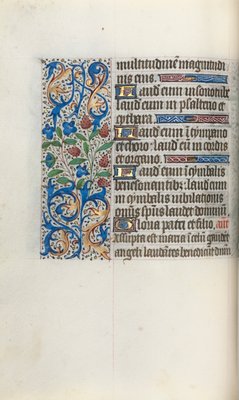 multitudinē magnitudi
nis eius.
Laud eum in sono tube
laud eum in psalterio et
cythara.
Laud eum ī tympano
et choro: laud eum in cordis
et organo.
Laud eum ī cymbalis
benesonantibꝰ: laud eum
in cymbalis iubilationis
omīs spūs laudet dominū.
Gloria patri et filio, ant
Assūpta est maria ī celū gaudet
angeli laudātes benedicūt dnm